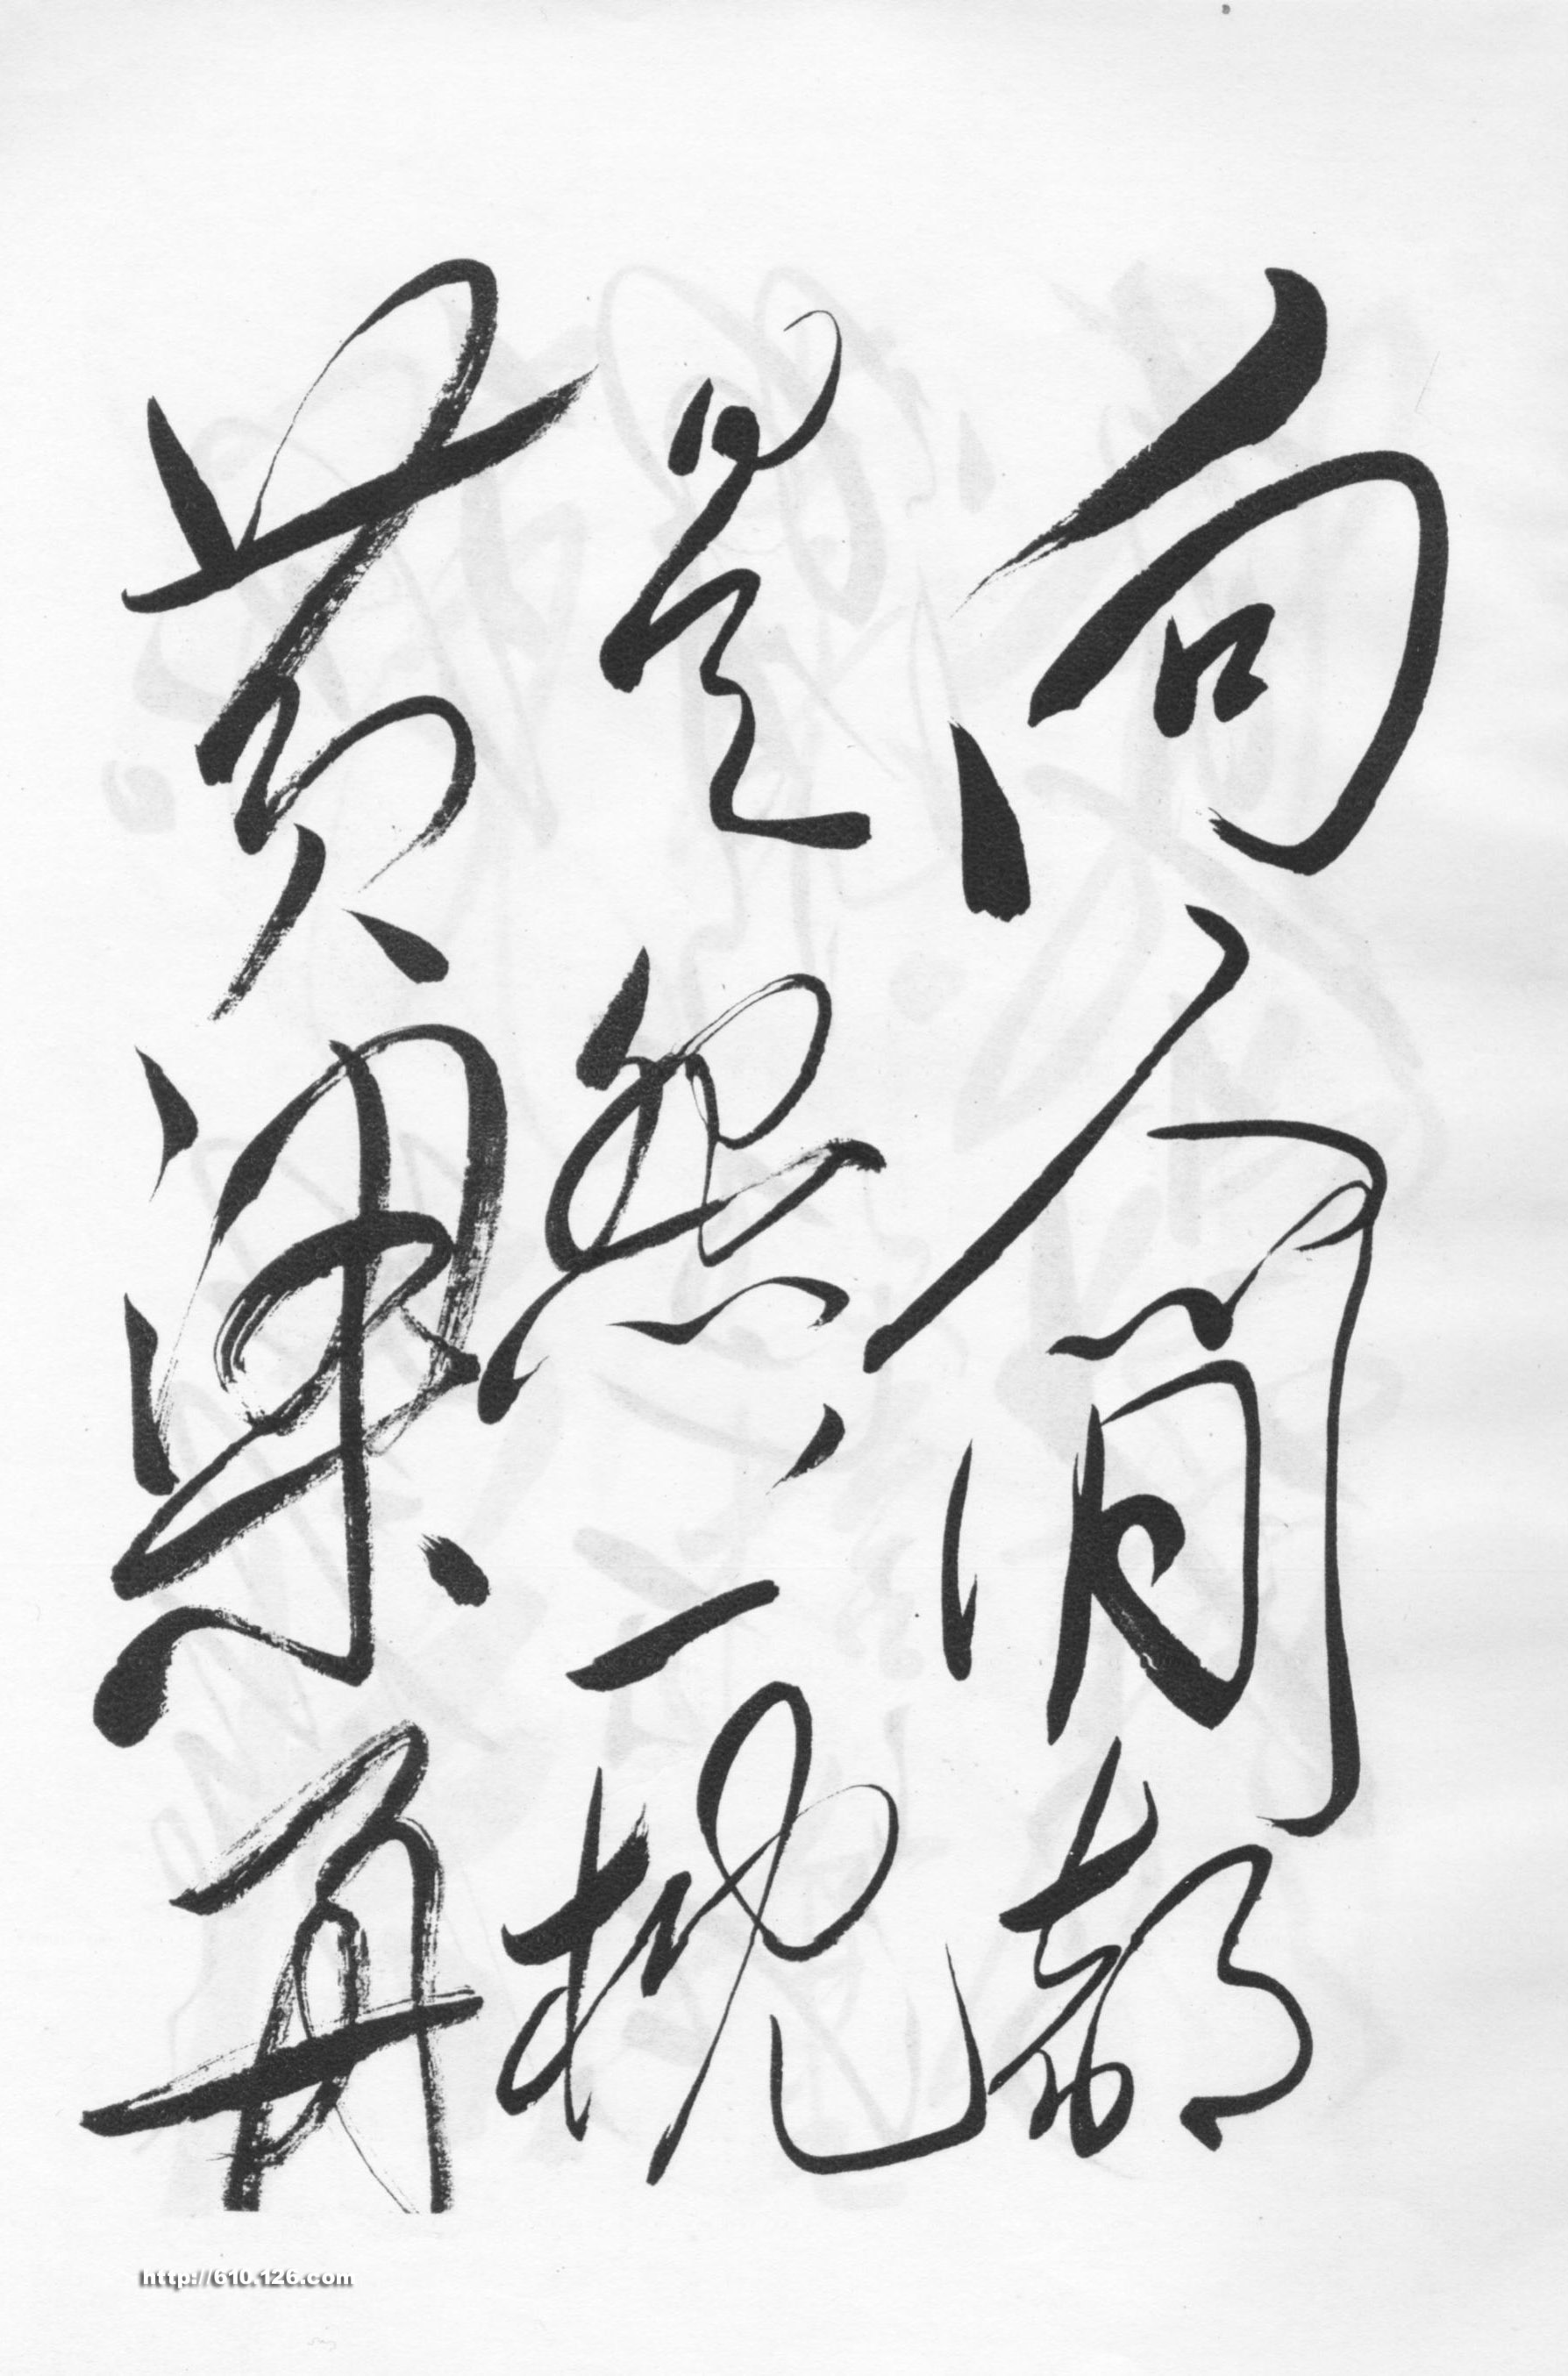 向人间都
是怨、一枕
黄粱再
http://610.126.com